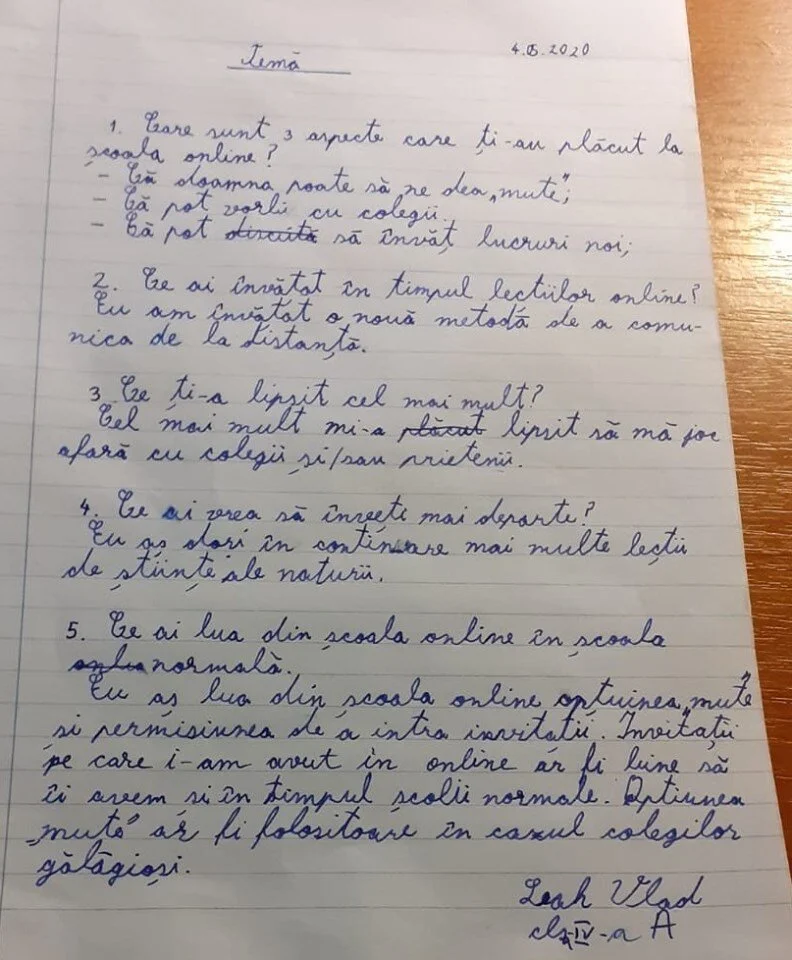 Temă
4.05.2020
1. Care sunt 3 aspecte care ți-au plăcut la
școala online?
- Că doamna poate să ne dea „mute";
- Că pot vorbi cu colegii.
- Că pot discuta să învăț lucruri noi;
2. Ce ai învățat în timpul lecțiilor online?
Eu am învățat o nouă metodă de a comu-
nica de la distanță.
3 Ce ți-a lipsit cel mai mult?
Cel mai mult mi-a plăcut lipsit să mă joc
afară cu colegii și/sau prietenii.
4. Ce ai vrea să înveți mai departe?
Eu aș dori în continuare mai multe lecții
de științe ale naturii.
5. Ce ai lua din școala online în școala
normală.
Eu aș lua din școala online opțuinea „mute"
și permisiunea de a intra invitații. Invitații
pe care i-am avut în online ar fi bine să
îi avem și în timpul școlii normale. Opțiunea
„mute" ar fi folositoare în cazul colegilor
gălăgioși.
Leah Vlad
cls a IV-a A